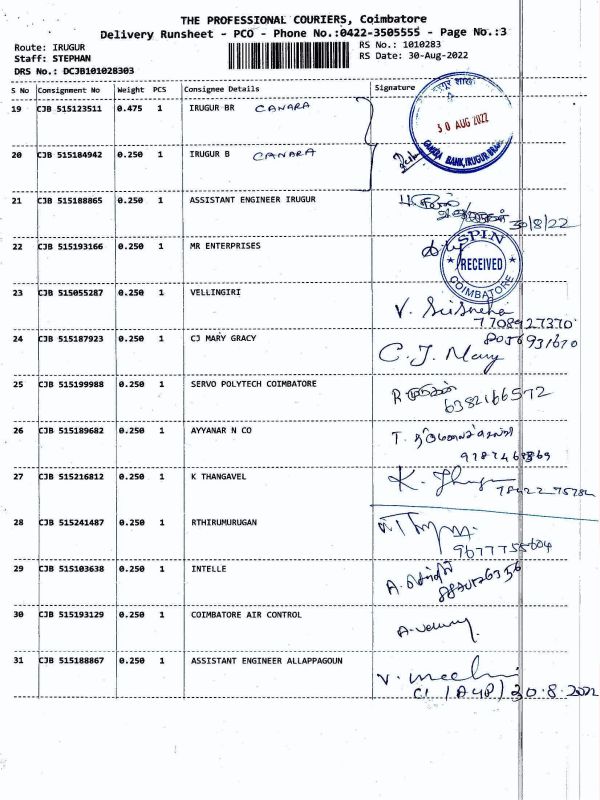 THE PROFESSIONAL COURIERS, Coimbatore
Delivery Runsheet - PCO - Phone No.:0422-3505555 - Page No.:3
Route: IRUGUR
RS No.: 1010283
Staff: STEPHAN
RS Date: 30-Aug-2022
DRS No.: DCJB101028303
S No Consignment No Weight PCS Consignee Details Signature
19 CJB 515123511 0.475 1 IRUGUR BR CANARA
30 AUG 2022
CANARA BANK, IRUGUR
20 CJB 515184942 0.250 1 IRUGUR B CANARA
21 CJB 515188865 0.250 1 ASSISTANT ENGINEER IRUGUR
30/8/22
22 CJB 515193166 0.250 1 MR ENTERPRISES
SPIN
RECEIVED
COIMBATORE
23 CJB 515055287 0.250 1 VELLINGIRI V. SriSneha
7708927370
24 CJB 515187923 0.250 1 CJ MARY GRACY C. J. Mary
8056931670
25 CJB 515199988 0.250 1 SERVO POLYTECH COIMBATORE
6382166572
26 CJB 515189682 0.250 1 AYYANAR N CO T.
27 CJB 515216812 0.250 1 K THANGAVEL K.
28 CJB 515241487 0.250 1 RTHIRUMURUGAN
9677755604
29 CJB 515103638 0.250 1 INTELLE A.
30 CJB 515193129 0.250 1 COIMBATORE AIR CONTROL
31 CJB 515188867 0.250 1 ASSISTANT ENGINEER ALLAPPAGOUN V.
30.8.2022